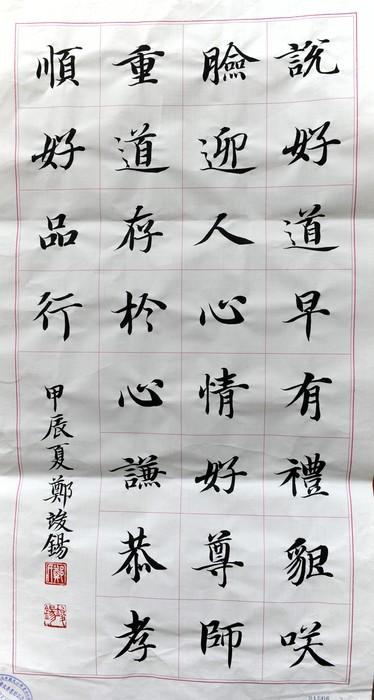 說好道早有禮貌咲
臉迎人心情好尊師
重道存於心謙恭孝
順好品行
甲辰夏鄭竣錫